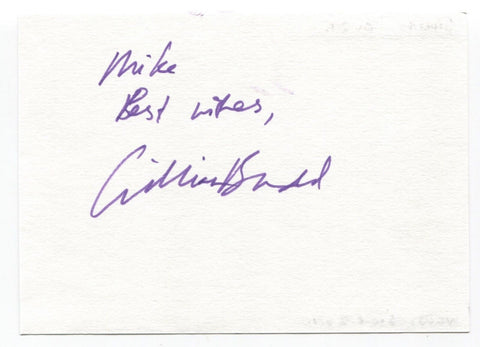 Mike
Best wishes,
Gillian Budd